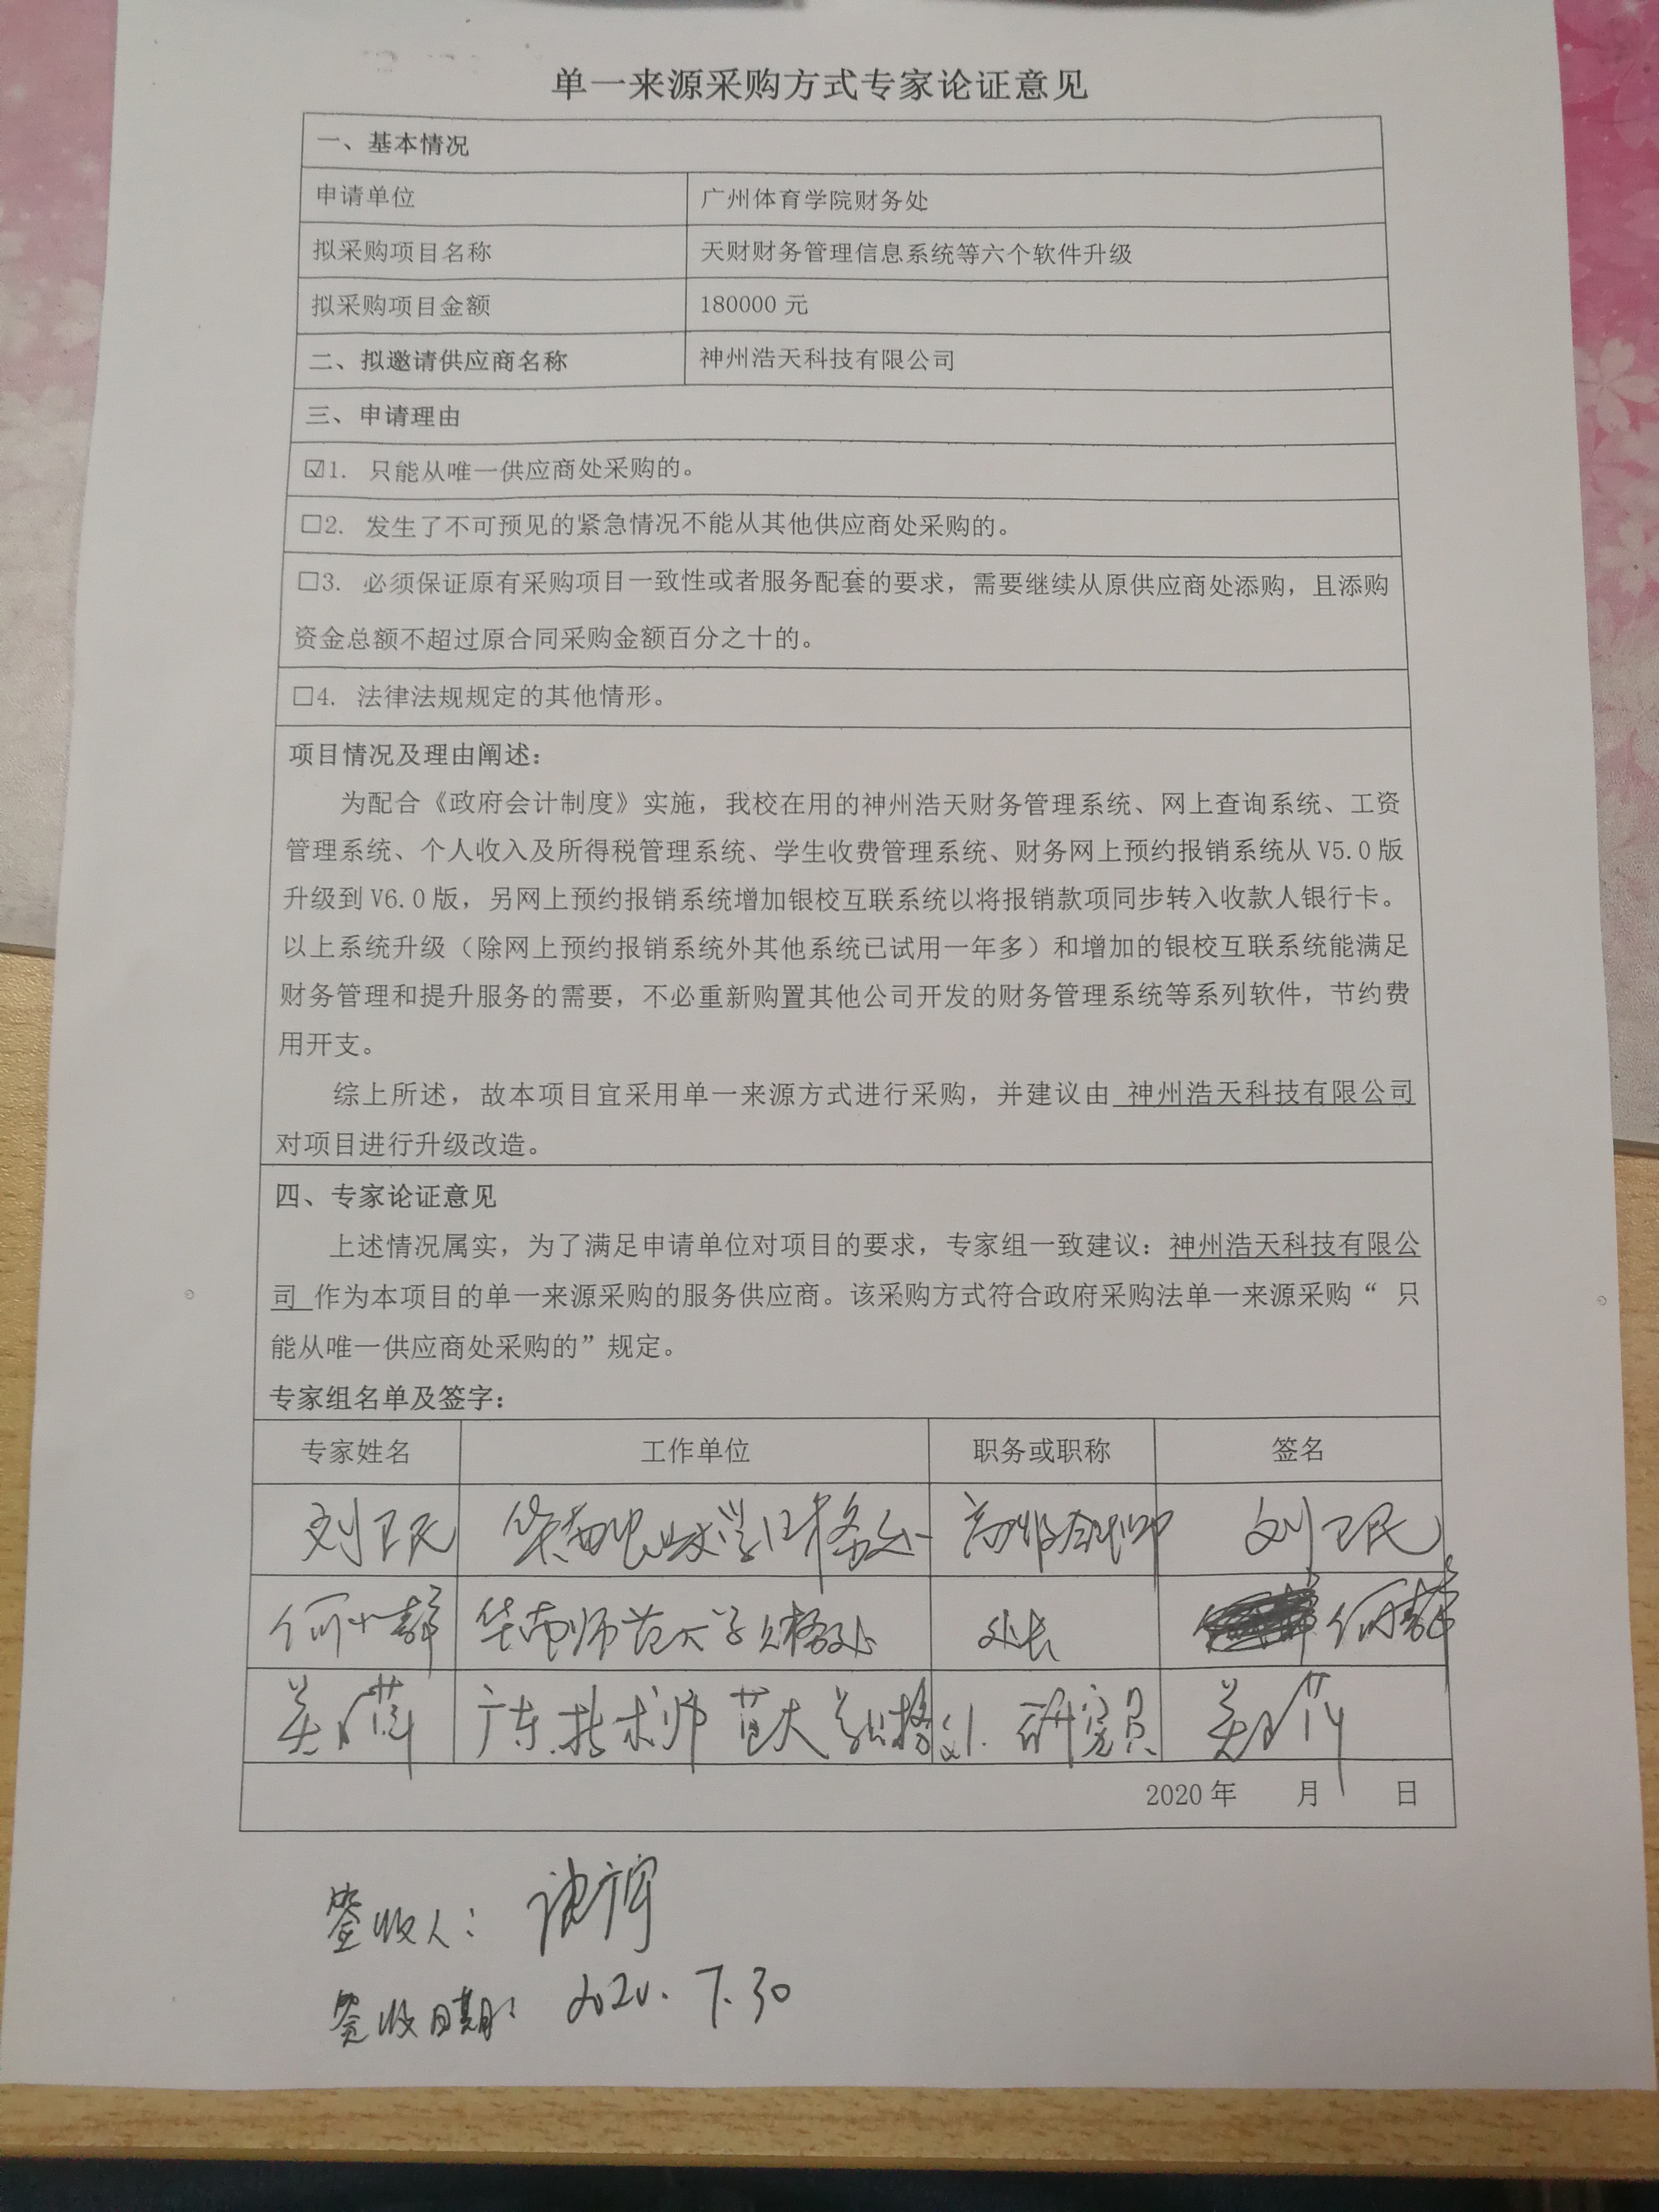 单一来源采购方式专家论证意见
一、基本情况
申请单位 广州体育学院财务处
拟采购项目名称 天财财务管理信息系统等六个软件升级
拟采购项目金额 180000 元
二、拟邀请供应商名称 神州浩天科技有限公司
三、申请理由
☑1. 只能从唯一供应商处采购的。
□2. 发生了不可预见的紧急情况不能从其他供应商处采购的。
□3. 必须保证原有采购项目一致性或者服务配套的要求，需要继续从原供应商处添购，且添购
资金总额不超过原合同采购金额百分之十的。
□4. 法律法规规定的其他情形。
项目情况及理由阐述：
为配合《政府会计制度》实施，我校在用的神州浩天财务管理系统、网上查询系统、工资
管理系统、个人收入及所得税管理系统、学生收费管理系统、财务网上预约报销系统从 V5.0 版
升级到 V6.0 版，另网上预约报销系统增加银校互联系统以将报销款项同步转入收款人银行卡。
以上系统升级（除网上预约报销系统外其他系统已试用一年多）和增加的银校互联系统能满足
财务管理和提升服务的需要，不必重新购置其他公司开发的财务管理系统等系列软件，节约费
用开支。
综上所述，故本项目宜采用单一来源方式进行采购，并建议由 神州浩天科技有限公司
对项目进行升级改造。
四、专家论证意见
上述情况属实，为了满足申请单位对项目的要求，专家组一致建议：神州浩天科技有限公
司 作为本项目的单一来源采购的服务供应商。该采购方式符合政府采购法单一来源采购“ 只
能从唯一供应商处采购的”规定。
专家组名单及签字：
专家姓名 工作单位 职务或职称 签名
刘卫民 华南农业大学财务处 高级会计师 刘卫民
何小静 华南师范大学财务处 处长
广东技术师范大学财务处 研究员
2020 年 月 日
签收人：
签收日期： 2020. 7. 30